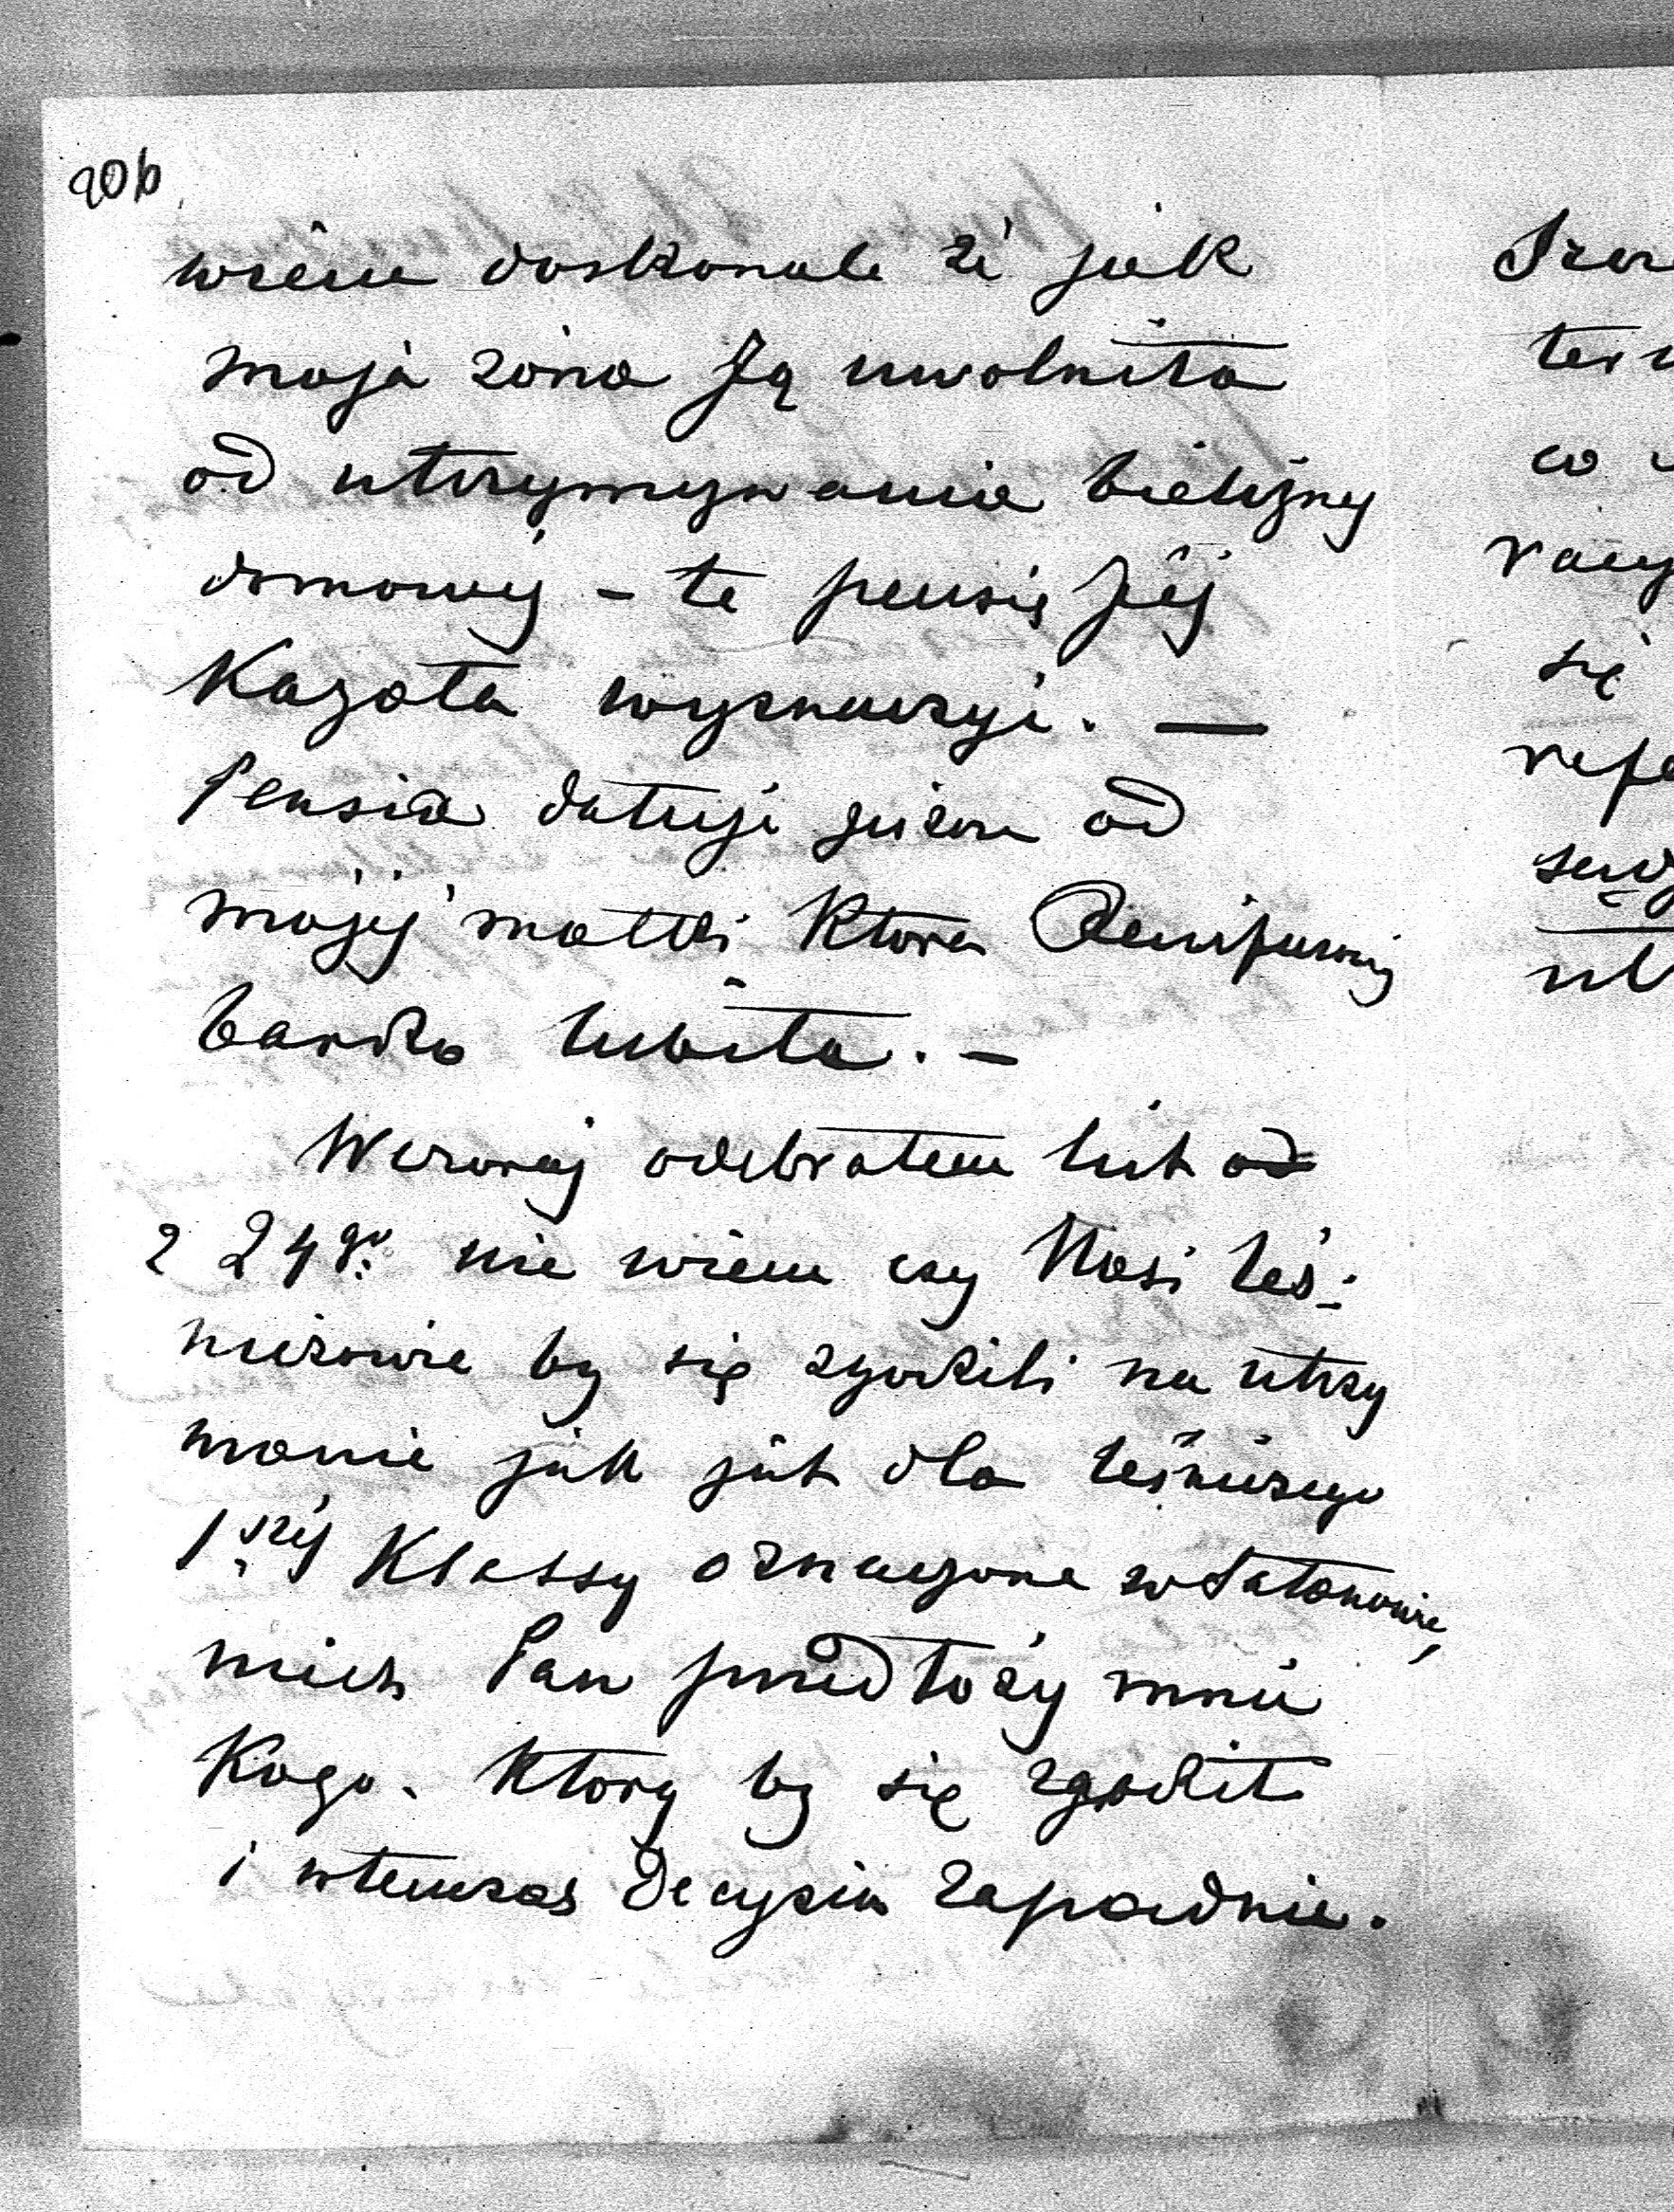 90b
wiém doskonale że jak
moja żona Ją uwolniła
od utrzymywania bielizny
domowéj - te pensię Jéj
Kazała wyznaczyć. —
Pensia datuje jeszcze od
mojéj matki która
bardzo lubiła. -
Wczoraj odebrałem list od
z 24go nie wiém czy Nasi leś-
niczowie by się zgodzili na utrzy
manie jak jest dla leśniczego
1széj Klassy oznaczone w Satanowie,
niech Pan przedłoży mnie
Kogo. Który by się zgodził
i wtenczas Decyzia zapadnie.
się
co